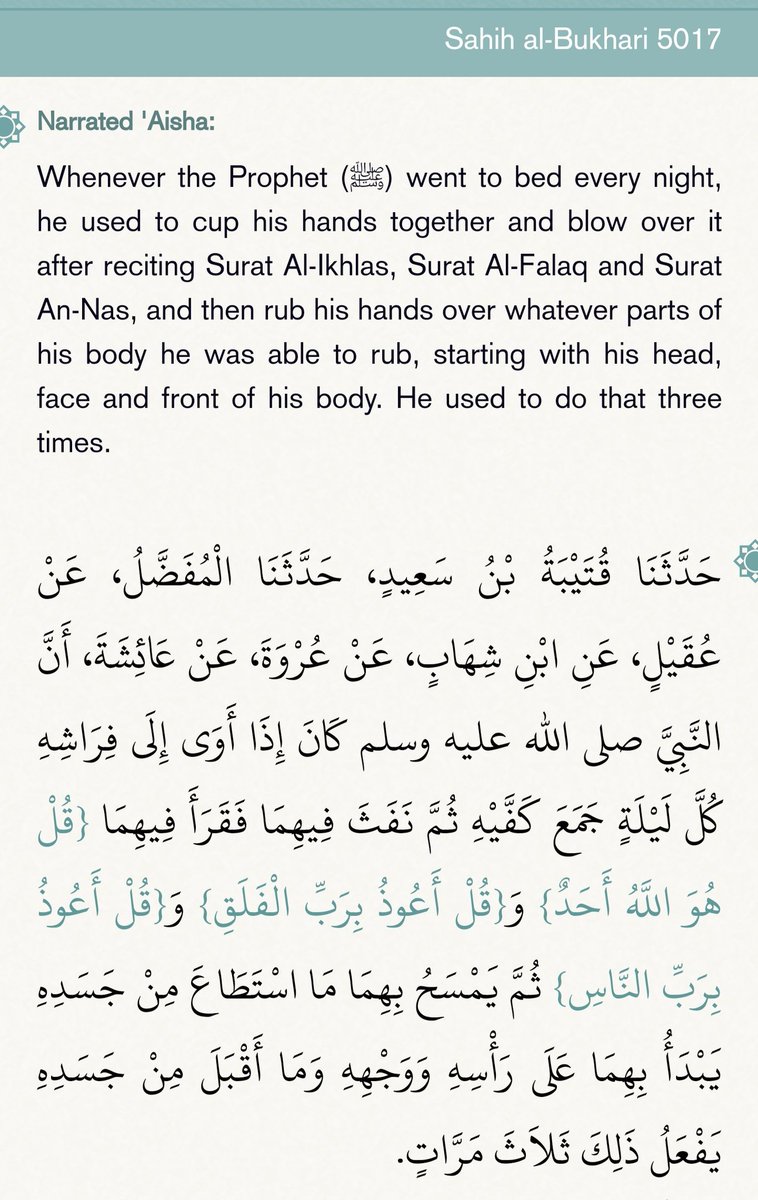 Sahih al-Bukhari 5017
Narrated 'Aisha:
Whenever the Prophet (ﷺ) went to bed every night,
he used to cup his hands together and blow over it
after reciting Surat Al-Ikhlas, Surat Al-Falaq and Surat
An-Nas, and then rub his hands over whatever parts of
his body he was able to rub, starting with his head,
face and front of his body. He used to do that three
times.
حَدَّثَنَا قُتَيْبَةُ بْنُ سَعِيدٍ، حَدَّثَنَا الْمُفَضَّلُ، عَنْ
عُقَيْلٍ، عَنِ ابْنِ شِهَابٍ، عَنْ عُرْوَةَ، عَنْ عَائِشَةَ، أَنَّ
النَّبِيَّ صلى الله عليه وسلم كَانَ إِذَا أَوَى إِلَى فِرَاشِهِ
كُلَّ لَيْلَةٍ جَمَعَ كَفَّيْهِ ثُمَّ نَفَثَ فِيهِمَا فَقَرَأَ فِيهِمَا ‏{‏قُلْ
هُوَ اللَّهُ أَحَدٌ‏}‏ وَ‏{‏قُلْ أَعُوذُ بِرَبِّ الْفَلَقِ‏}‏ وَ‏{‏قُلْ أَعُوذُ
بِرَبِّ النَّاسِ‏}‏ ثُمَّ يَمْسَحُ بِهِمَا مَا اسْتَطَاعَ مِنْ جَسَدِهِ
يَبْدَأُ بِهِمَا عَلَى رَأْسِهِ وَوَجْهِهِ وَمَا أَقْبَلَ مِنْ جَسَدِهِ
يَفْعَلُ ذَلِكَ ثَلاَثَ مَرَّاتٍ.